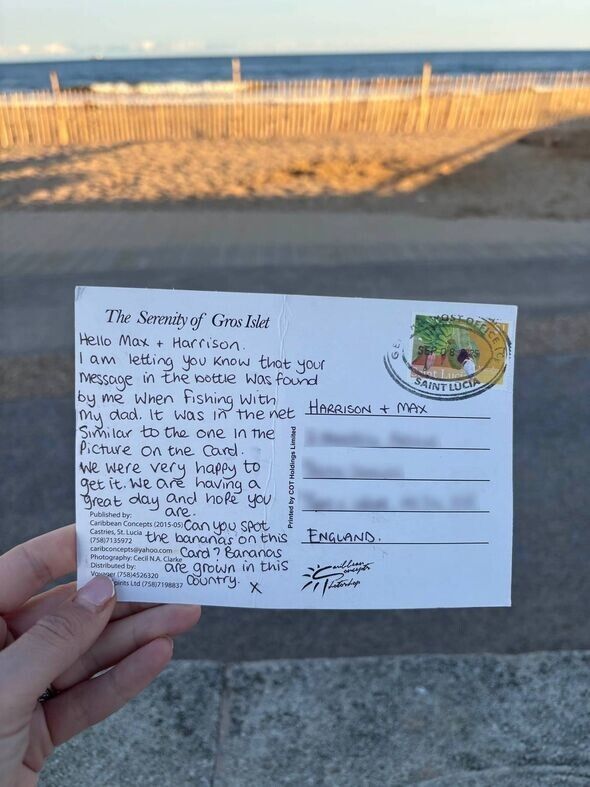 The Serenity of Gros Islet
Hello Max + Harrison.
I am letting you know that your
message in the bottle was found
by me when fishing with
my dad. It was in the net
Similar to the one in the
Picture on the Card.
We were very happy to
get it. We are having a
great day and hope you
are.
Can you spot
the bananas on this
Card? Bananas
are grown in this
Country. x
Published by:
Caribbean Concepts (2015-05)
Castries, St. Lucia
(758)7135972
caribconcepts@yahoo.com
Photography: Cecil N.A. Clarke
Distributed by:
Voyager (758)4526320
pints Ltd (758)7198837
Printed by COT Holdings Limited
POST OFFICE
SEP 08
Saint Lucia
SAINT LUCIA
HARRISON + MAX
ENGLAND.
Caribbean
Concepts